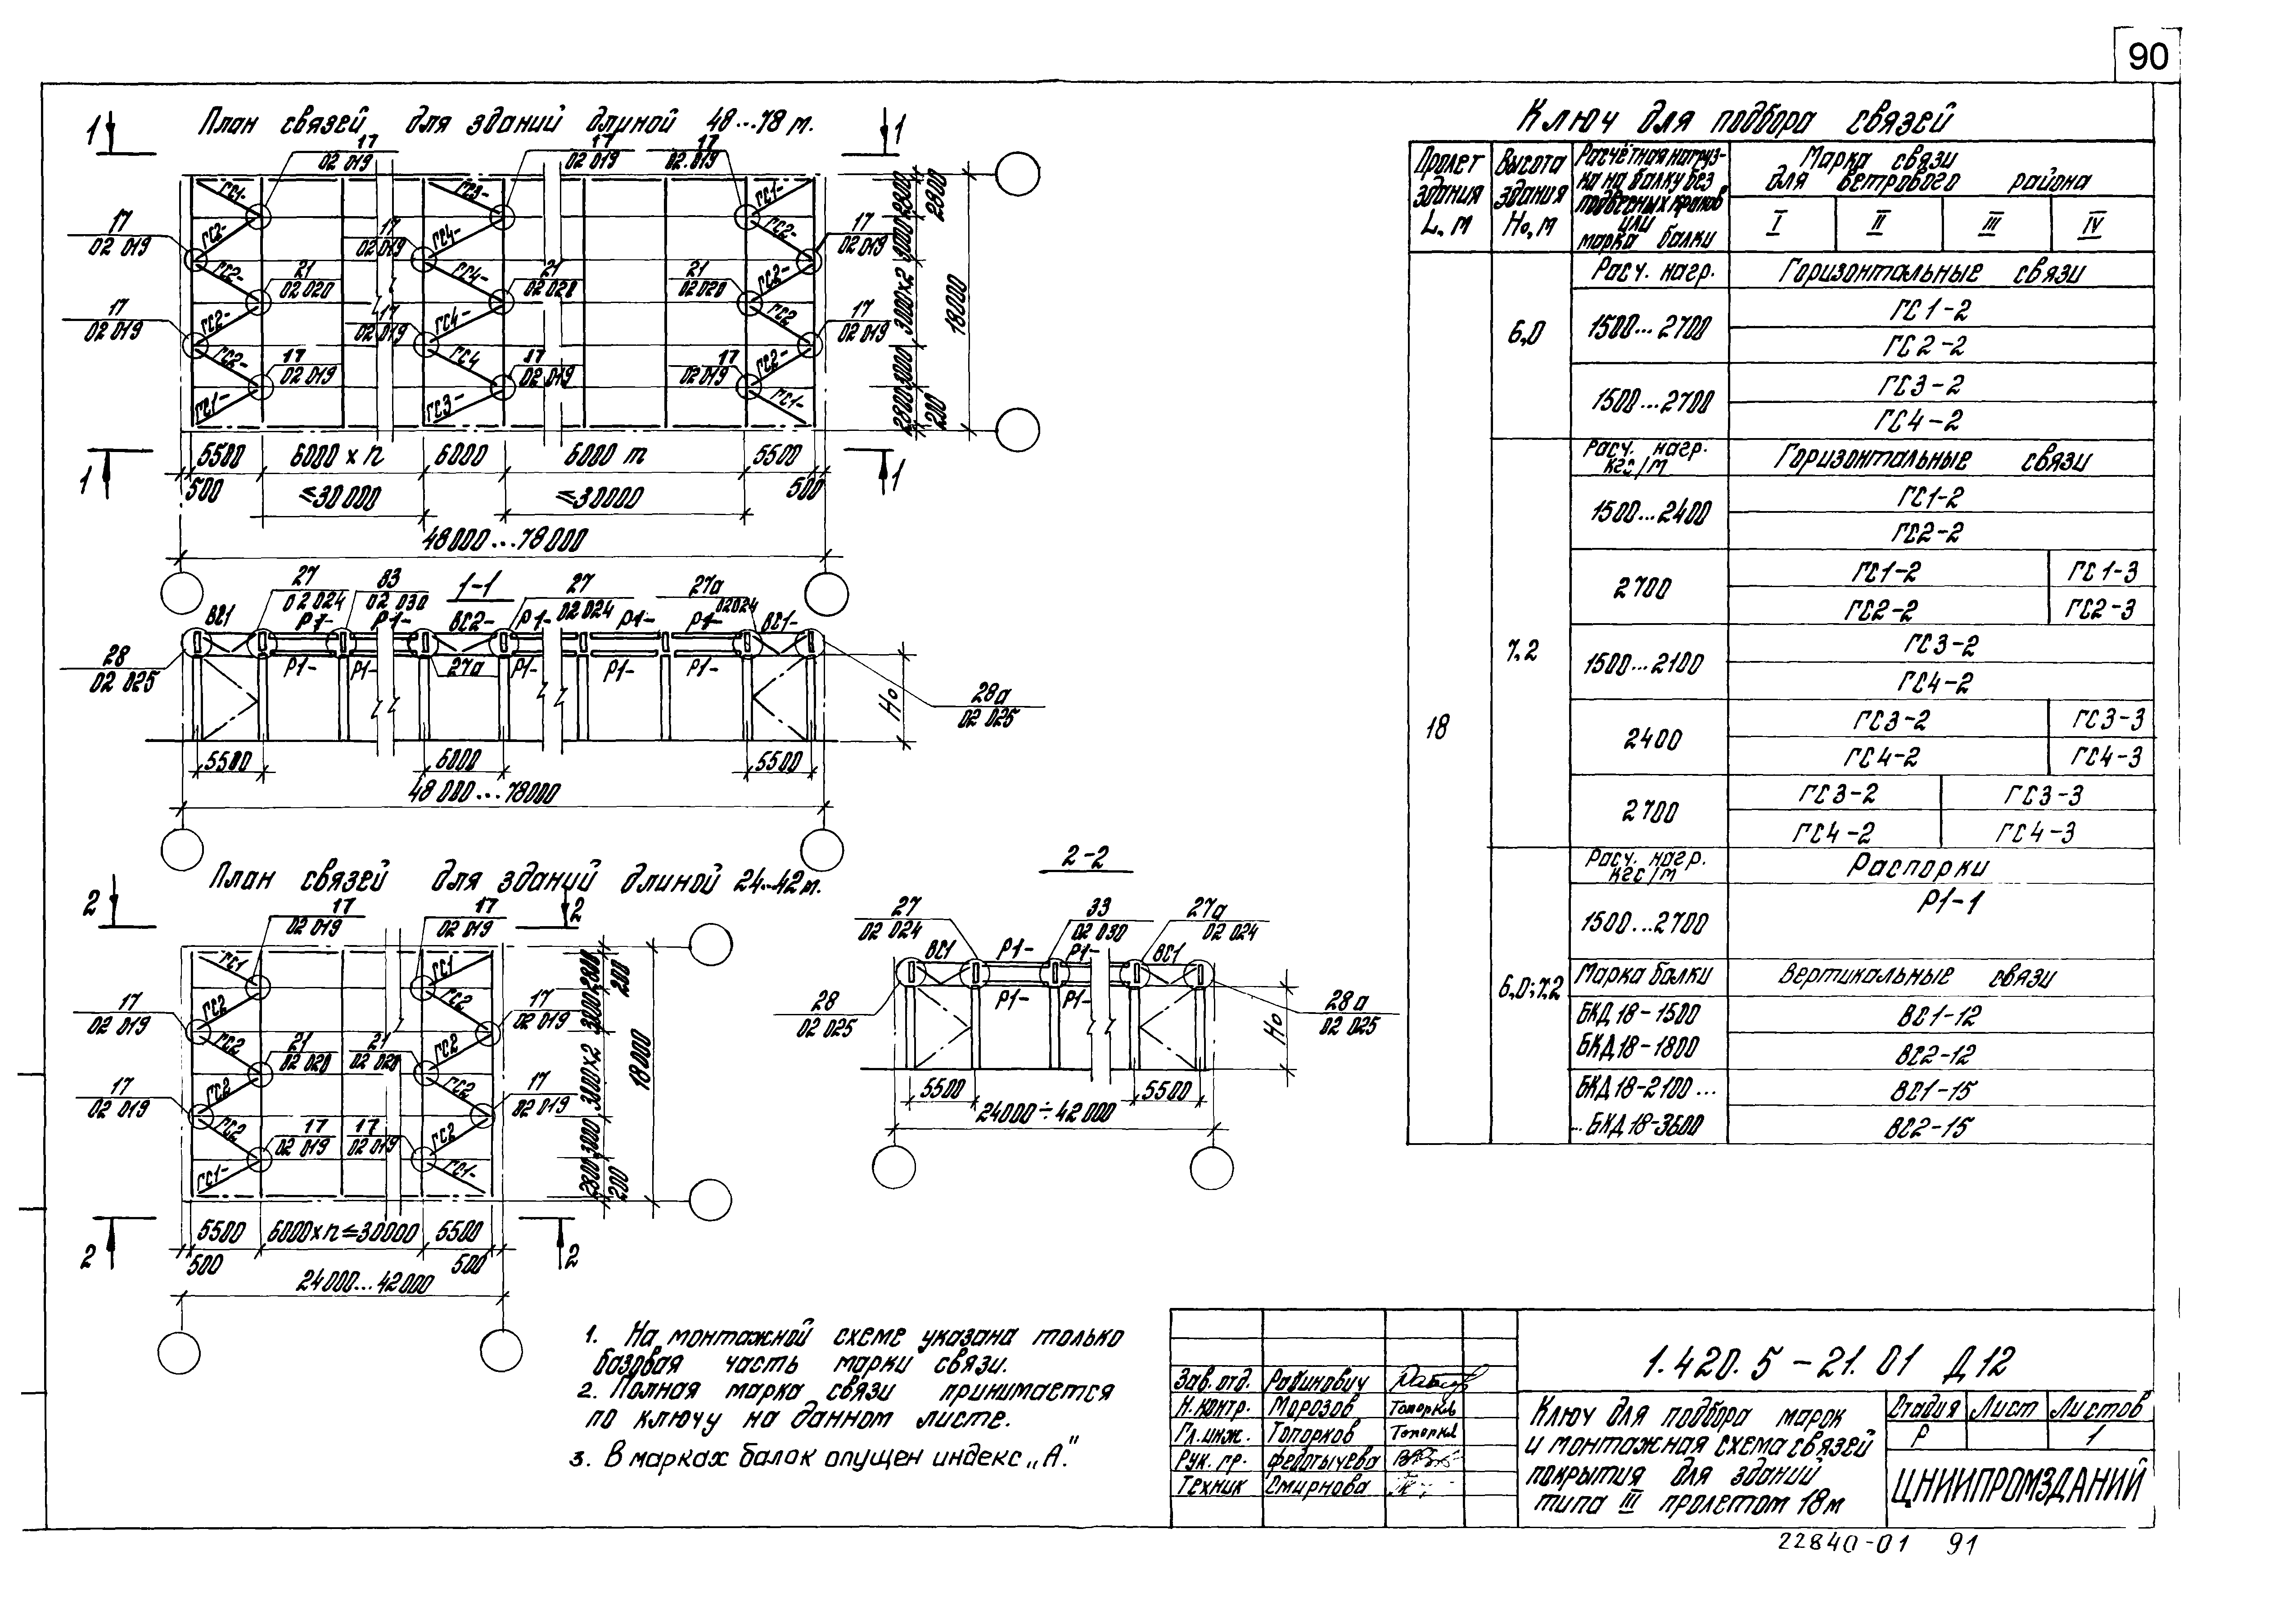 90
План связей для зданий длиной 48...78 м.
1 1
17 17 17
02 019 02 019 02.019
ГС1- ГС3- ГС1-
17 17 17
02 019 02 019 02 019
ГС2- ГС4- ГС2-
ГС2- ГС4- ГС2-
21 21 21
02 020 02 020 02 020
17 17 17
02 019 02 019 02 019
ГС2- ГС4- ГС2
ГС2- ГС4 ГС2-
17 17 17
02 019 02 019 02 019
ГС1- ГС3- ГС1-
2800 3000 3000×2 3000 2800
200
18000
5500 6000 × n 6000 6000 m 5500
500 ≤30 000 ≤30000 500
1 1
48000...78000
1-1
27 33 27 27а
02 024 02 030 02 024 02024
ВС1 Р1- Р1- ВС2- Р1- Р1- Р1- ВС1-
28
02 025
Р1- Р1- 27а Р1- Р1- Р1-
Н₀
28а
02 025
5500 6000 5500
48 000...78000
План связей для зданий длиной 24...42 м.
2 2
17 17
02 019 02 019
ГС1 ГС1
17 17
02 019 02 019
ГС2 ГС2
ГС2 ГС2
21 21
02 020 02 020
17 17
02 019 02 019
ГС2 ГС2
ГС2 ГС2
17 17
02 019 02 019
ГС1- ГС1-
2800 3000 3000×2 3000 2800
200 200
18000
5500 6000×n≤30000 5500
500 500
2 2
24000...42000
2-2
27 33 27а
02 024 02 030 02 024
ВС1 Р1- Р1- ВС1
28 Р1- Р1- 28а
02 025 02 025
Н₀
5500 5500
24000÷42 000
Ключ для подбора связей
Пролет здания L, м
Высота здания Н₀, м
Расчётная нагруз-
ка на балку без
подвесных кранов
или
марка балки
Марка связи
для ветрового района
I II III IV
Расч. нагр. Горизонтальные связи
6,0 1500...2700 ГС1-2
ГС2-2
1500...2700 ГС3-2
ГС4-2
Расч. нагр. кгс/м Горизонтальные связи
1500...2400 ГС1-2
ГС2-2
2700 ГС1-2 ГС1-3
ГС2-2 ГС2-3
7,2 1500...2100 ГС3-2
ГС4-2
18 2400 ГС3-2 ГС3-3
ГС4-2 ГС4-3
2700 ГС3-2 ГС3-3
ГС4-2 ГС4-3
Расч. нагр. кгс/м Распорки
1500...2700 Р1-1
6,0; 7,2 Марка балки Вертикальные связи
БКД 18-1500 ВС1-12
БКД 18-1800 ВС2-12
БКД 18-2100... ВС1-15
..БКД 18-3600 ВС2-15
1. На монтажной схеме указана только
базовая часть марки связи.
2. Полная марка связи принимается
по ключу на данном листе.
3. В марках балок опущен индекс „А."
Зав. отд. Рабинович
Н. контр. Морозов Топорков
Гл. инж. Топорков Топорков
Рук. гр. Федотычева
Техник Смирнова
1.420.5-21.01 Д12
Ключ для подбора марок
и монтажная схема связей
покрытия для зданий
типа III пролетом 18м
Стадия Лист Листов
Р 1
ЦНИИПРОМЗДАНИЙ
22840-01 91